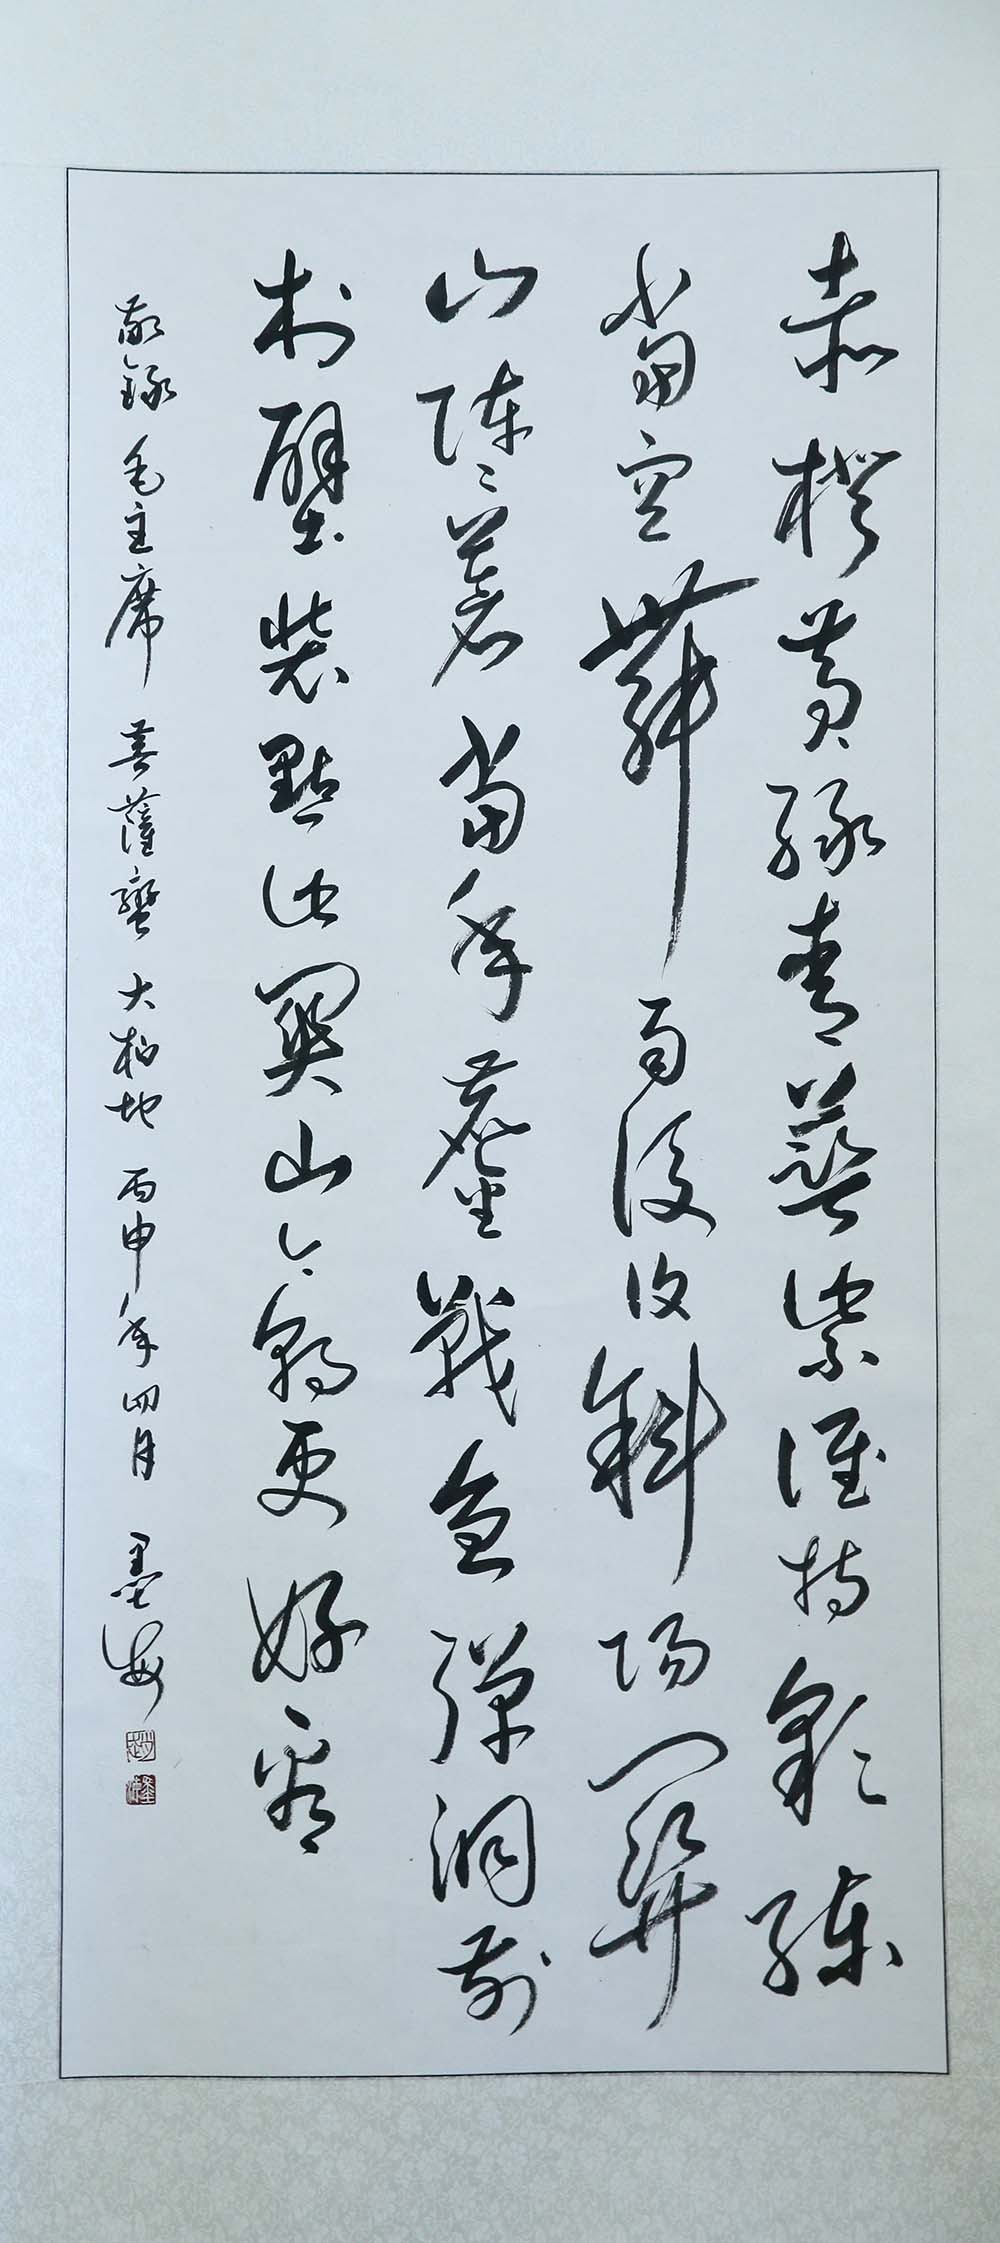 赤橙黄绿青蓝紫谁持彩练
当空舞雨后復斜阳関
山阵〻苍当年鏖戰急弹洞前
村壁装點此関山今朝更好看
敬録毛主席菩薩蠻大柏地丙申年四月墨海